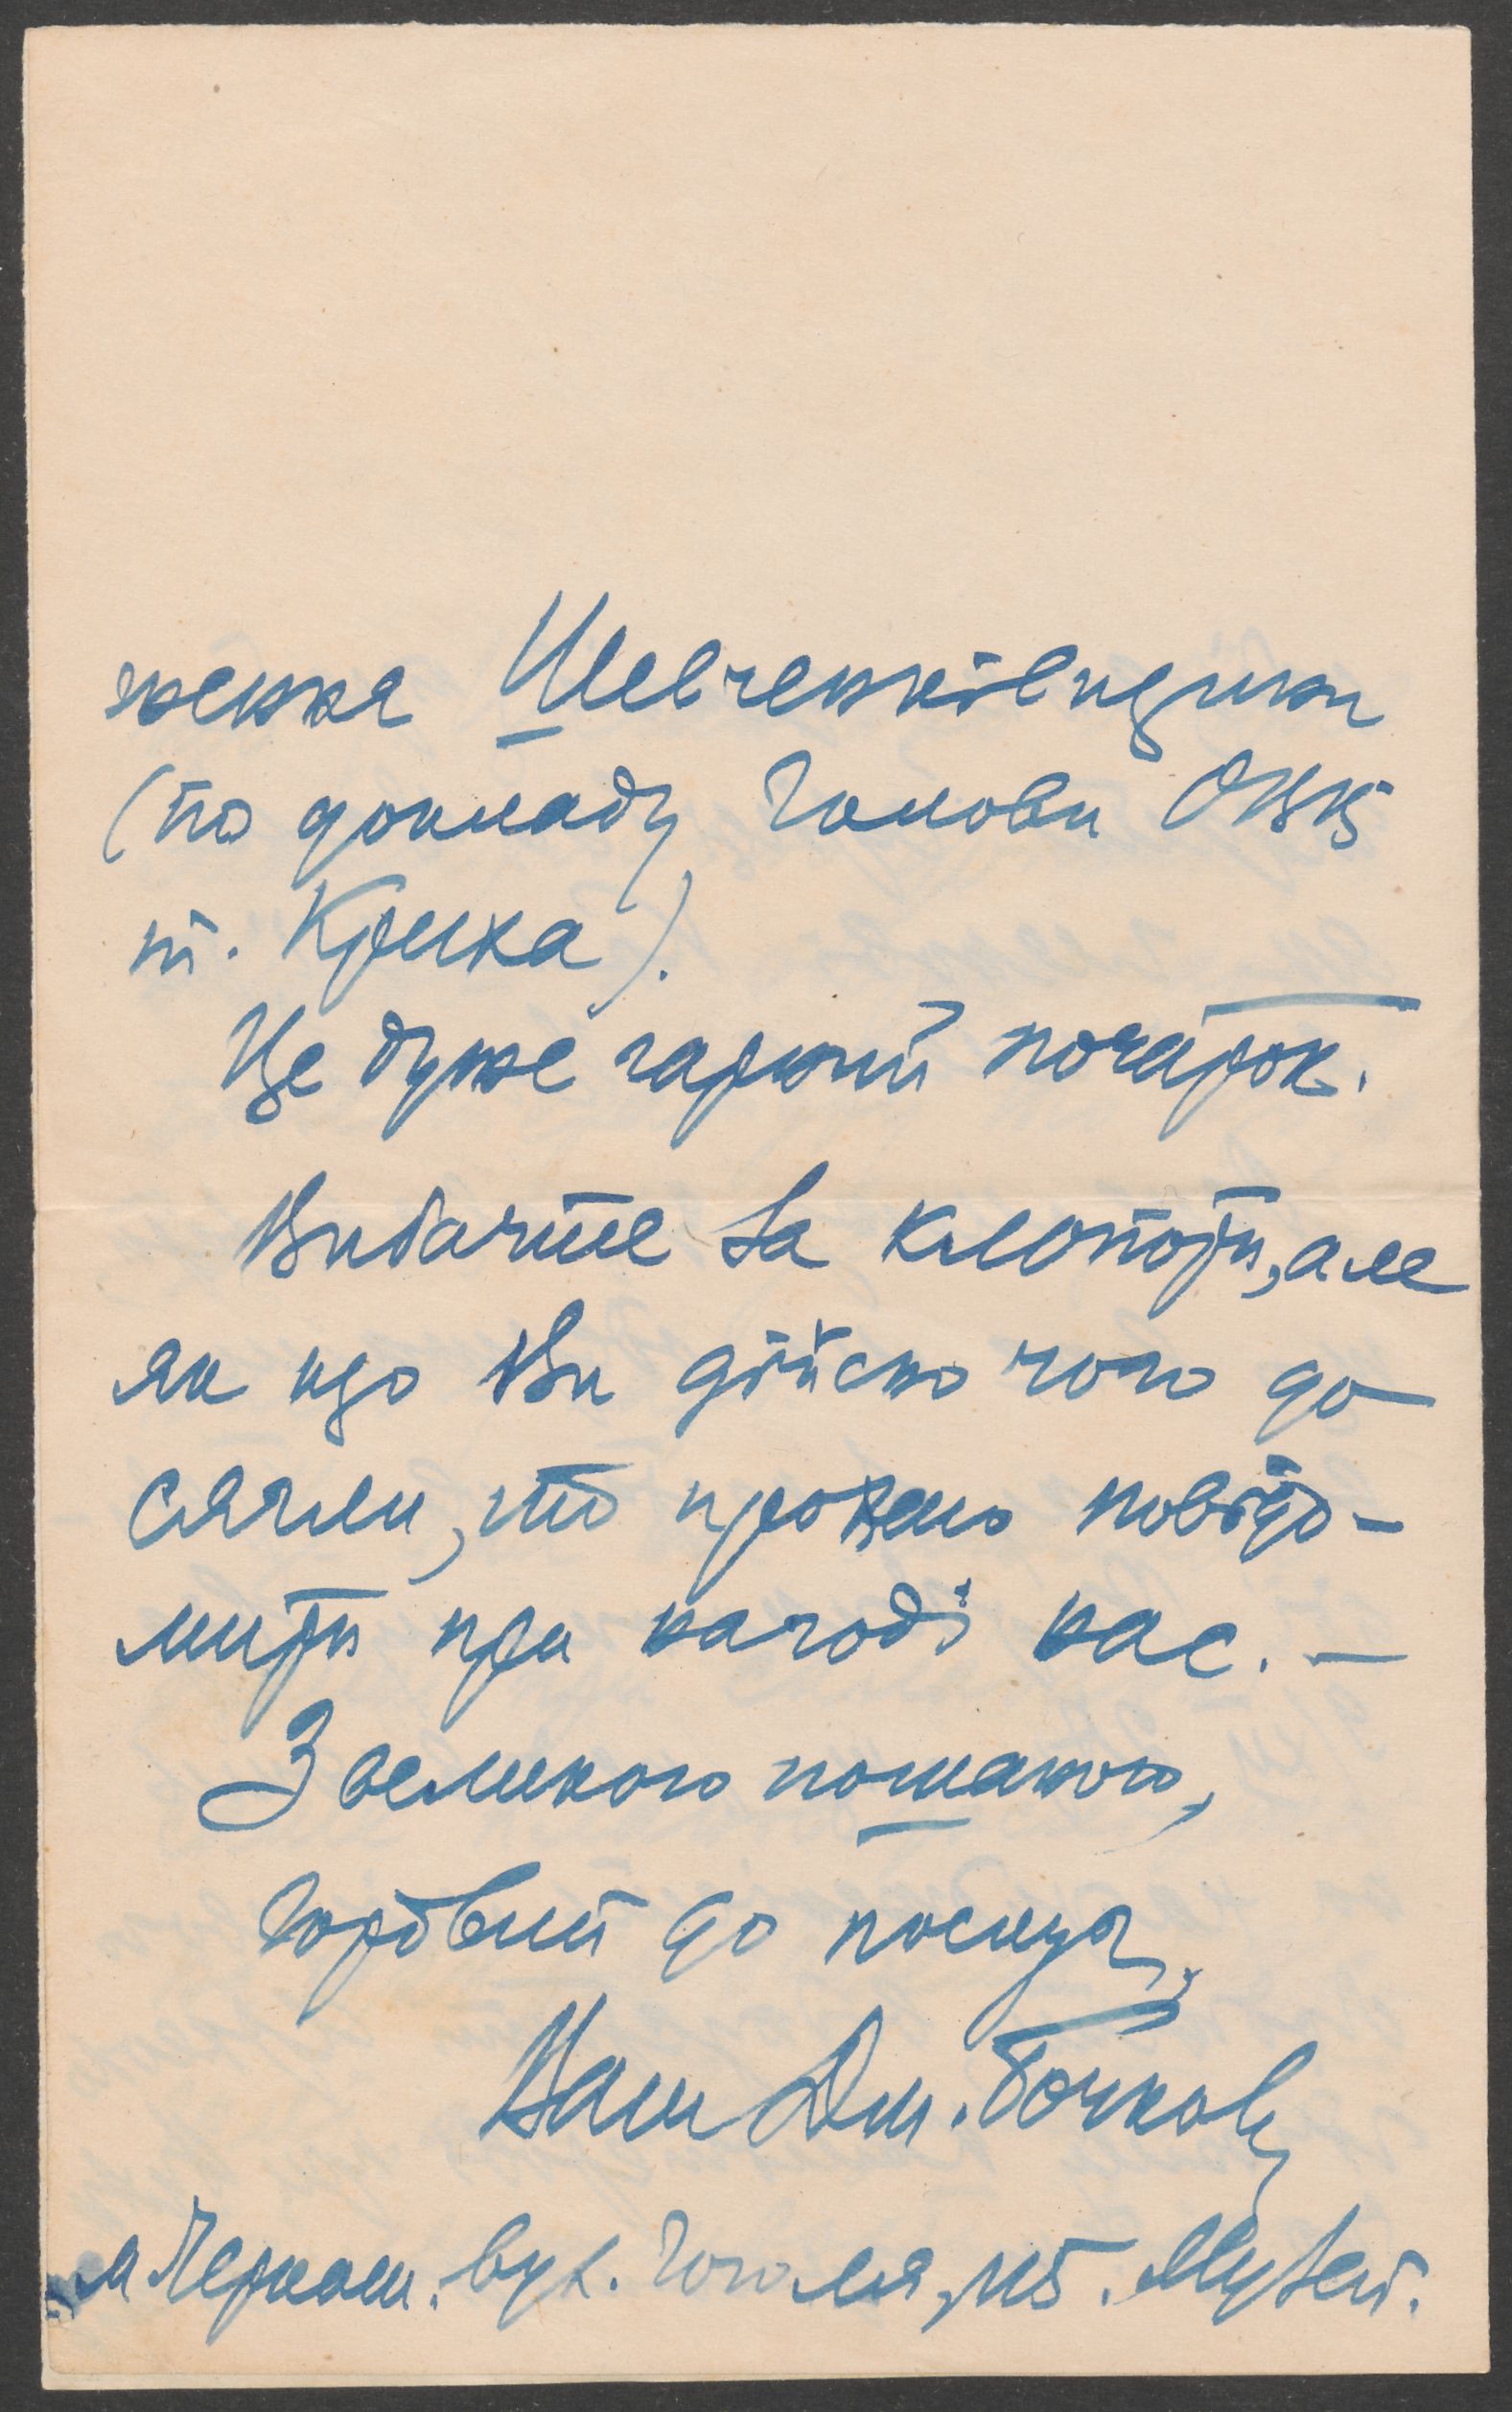 ження Шевченківщини
(по докладу Голови ОВК
т. Криха).
Це дуже гарний початок.
Вибачте за клопоти, але
як що Ви дійсно чого до
сягли, то прохаю повідо-
мити при нагоді нас. —
З великою пошаною,
готовий до послуг,
Ваш Дм. Бочков
м Черкаси. вул. Гоголя, Музей.